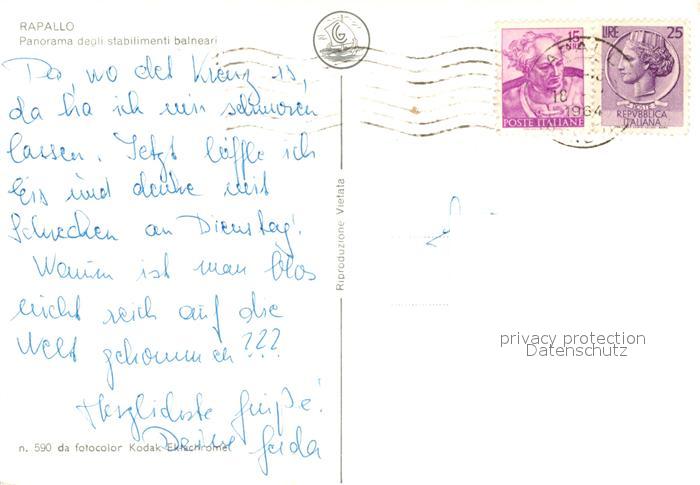 RAPALLO
Panorama degli stabilimenti balneari
Da, wo das Kreuz is,
da hab ich mir schmoren
lassen. Jetzt löffle ich
Eis und denke mit
Schrecken an Dienstag!
Warum ist man blos
nicht reich auf die
Welt gekommen???
Herzlichste Grüße!
Deine
n. 590 da fotocolor Kodak Ektachrome
Riproduzione Vietata
15 LIRE
POSTE ITALIANE
LIRE 25
POSTE
REPVBBLICA
ITALIANA
18
1964
privacy protection
Datenschutz